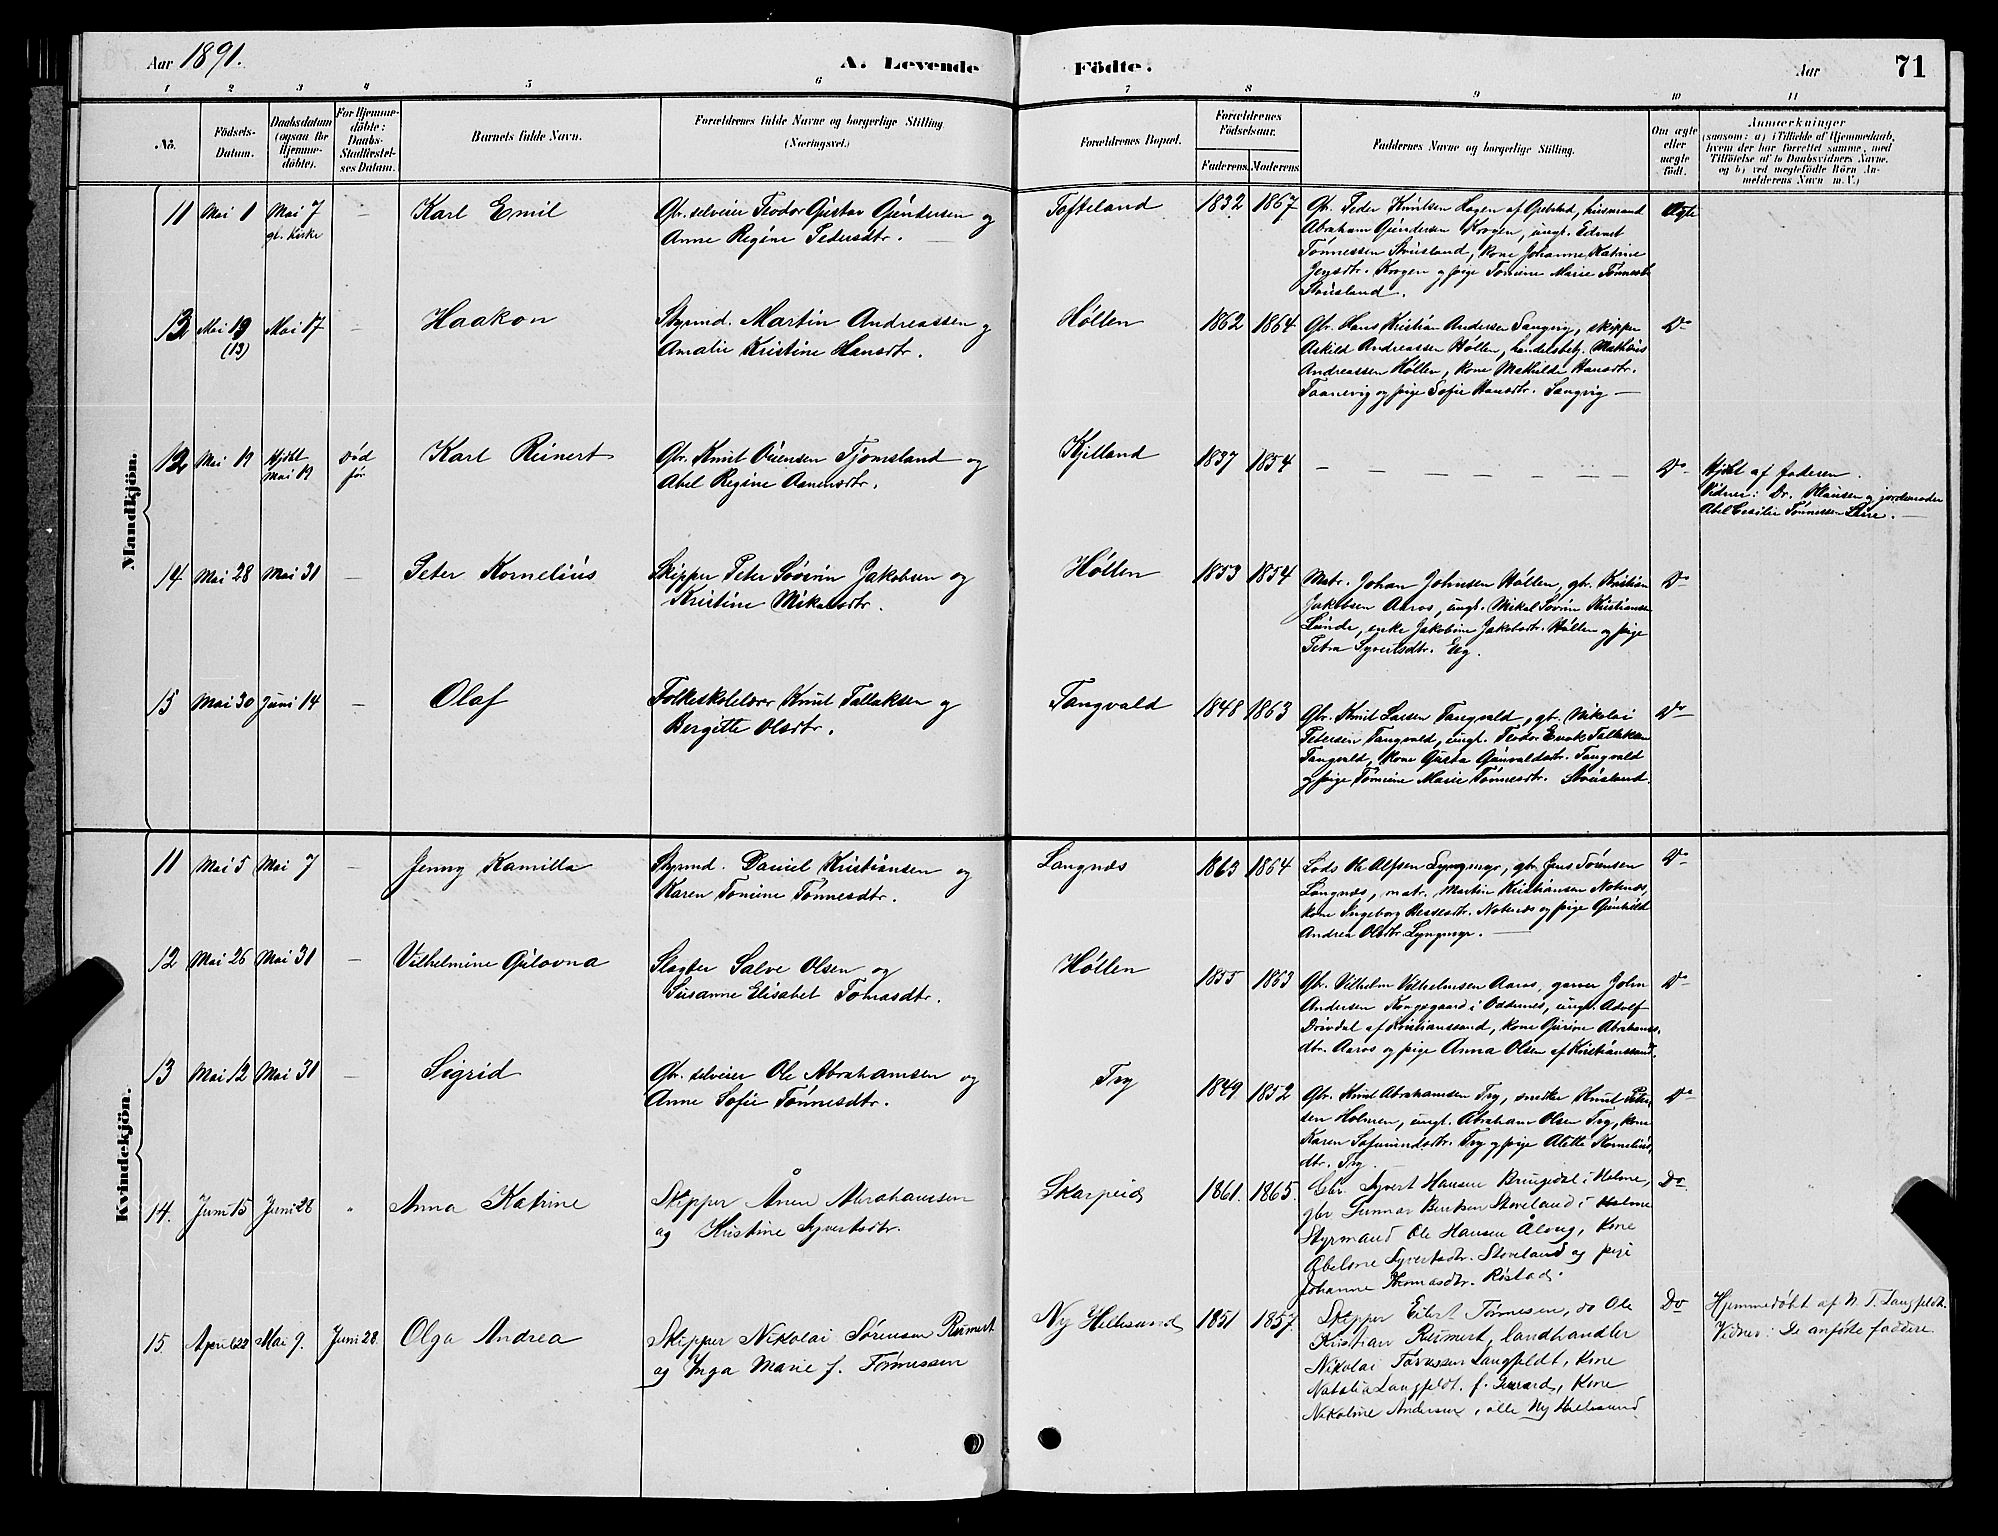 Aar 1891.
A. Levende Födte.
Aar
71
1 2 3 4 5 6 7 8 9 10 11
No.
Födsels-
Datum.
Daabsdatum
(ogsaa for
Hjemme-
döbte).
For Hjemme-
döbte:
Daabs-
Stadfæstel-
ses Datum.
Barnets fulde Navn.
Forældrenes fulde Navne og borgerlige Stilling
(Næringsvei.)
Forældrenes Bopæl.
Forældrenes
Födselsaar.
Faderens. Moderens.
Faddernes Navne og borgerlige Stilling.
Om ægte
eller
uægte
födt.
Anmærkninger
(saasom: a) i Tilfælde af Hjemmedaab,
hvem der har forrettet samme, med
Tilföielse af to Daabsvidners Navne,
og b) ved uægtefödte Börn An-
melderens Navn m. V.)
Mandkjön.
11 Mai 1 Mai 7
gl. Kirke
–
Karl Emil
Gbr. selveier Teodor Gustav Gundersen og
Anne Regine Pedersdtr.
Tofteland
1832 1867
Gbr. Peder Knutsen Hagen af Opstad, husmand
Abraham Gundersen Krogen, ungk. Edvart
Tønnessen Stousland, kone Johanne Katrine
Jensdtr. Krogen og pige Tomine Marie Tønnesdtr
Stousland.
Ægte
13 Mai 19
(13)
Mai 17
–
Haakon
Styrmd. Martin Andreassen og
Amalie Kristine Hansdtr.
Høllen
1862 1864
Gbr. Hans Kristian Andersen Langvig, skipper
Askild Andreassen Høllen, handelsbetj. Mathias
Andreassen Høllen, kone Mathilde Hansdtr.
Taanevig og pige Sofie Hansdtr. Langvig –
Do
12 Mai 19
Hjdbt
Mai 19
død
før
Karl Reinert
Gbr. Knut Ouensen Tjomsland og
Abel Regine Aanensdtr.
Kjelland
1837 1854
– – – – – –
Do
Hjdbt af faderen.
Vidner: Dr. Klausen og jordemoder
Abel Cecilie Tønnessen Lhne.
14 Mai 28 Mai 31
–
Peter Kornelius
Skipper Peter Søvrin Jakobsen og
Kristine Mikalsdtr.
Høllen
1853 1854
Matr. Johan Johnsen Høllen, gbr. Kristian
Jakobsen Aaros, ungk. Mikal Sovrin Kristiansen
Lunde, enke Jakobine Jakobsdtr. Høllen og pige
Petra Syvertsdtr. Eeg.
Do
15 Mai 30 Juni 14
–
Olaf
Folkeskolelærer Knut Tallaksen og
Bergitte Olsdtr.
Tangvald
1848 1863
Gbr. Knut Larsen Tangvald, gbr. Nikolai
Petersen Tangvald, ungk. Teodor Enok Tallaksen
Tangvald, kone Gusta Gunvaldsdtr. Tangvald
og pige Tomine Marie Tønnesdtr. Stousland.
Do
Kvindekjön.
11 Mai 5 Mai 7
–
Jenny Kamilla
Styrmd. Daniel Kristiansen og
Karen Tomine Tønnesdtr.
Langnæs
1863 1864
Lods Ole Alfsen Lyngmyr, gbr. Jens Sørensen
Langnæs, matr. Martin Kristiansen Notenæs,
kone Ingeborg Bessesdtr. Notenæs og pige Gunhild
Andrea Olsdtr. Lyngmyr.
Do
12 Mai 26 Mai 31
–
Vilhelmine Gilovna
Slagter Salve Olsen og
Susanne Elisabet Tomasdtr.
Høllen
1855 1863
Gbr. Vilhelm Vilhelmsen Aaros, garver John
Andersen Kongsgaard i Oddernes, ungk. Adolf
Drivdal af Kristianssand, kone Gurine Abrahams-
dtr. Aaros og pige Anna Olsen af Kristianssand.
Do
13 Mai 12 Mai 31
–
Sigrid
Gbr. selveier Ole Abrahamsen og
Anne Sofie Tønnesdtr.
Try
1849 1852
Gbr. Knut Abrahamsen Try, snedker Knut Peter-
sen Holmen, ungk. Abraham Olsen Try, kone
Karen Sofimundsdtr. Try og pige Alette Kornelius-
dtr. Try.
Do
14. Juni 15 Juni 28
"
Anna Katrine
Skipper Ånen Abrahamsen
og Kristine Syvertsdtr.
Skarpeid
1861. 1865.
Gbr. Syvert Hansen Bringsdal i Helme,
gbr Gunnar Bentsen Stoveland i Holme
Styrmand Ole Hansen Ålvig, Kone
Abelone Syvertsdtr. Stoveland og pige
Johanne Thomasdtr. Ristad.
Do.
15. April 22 Mai 9. Juni 28.
Olga Andrea
Skipper Nikolai Sørensen Reimert
og Inga Marie f. Tønnessen
Ny Hellesund
1851 1857.
Skipper Eilert Tønnesen, do Ole
Kristian Reimert, Landhandler
Nikolai Tønnessen Langfeldt, Kone
Natalia Langfeldt. f. Gerrard, Kone
Nikoline Andersen, alle Ny Hellesund
Do
Hjemmedøbt af N. T. Langfeldt.
Vidner: De anførte faddere.